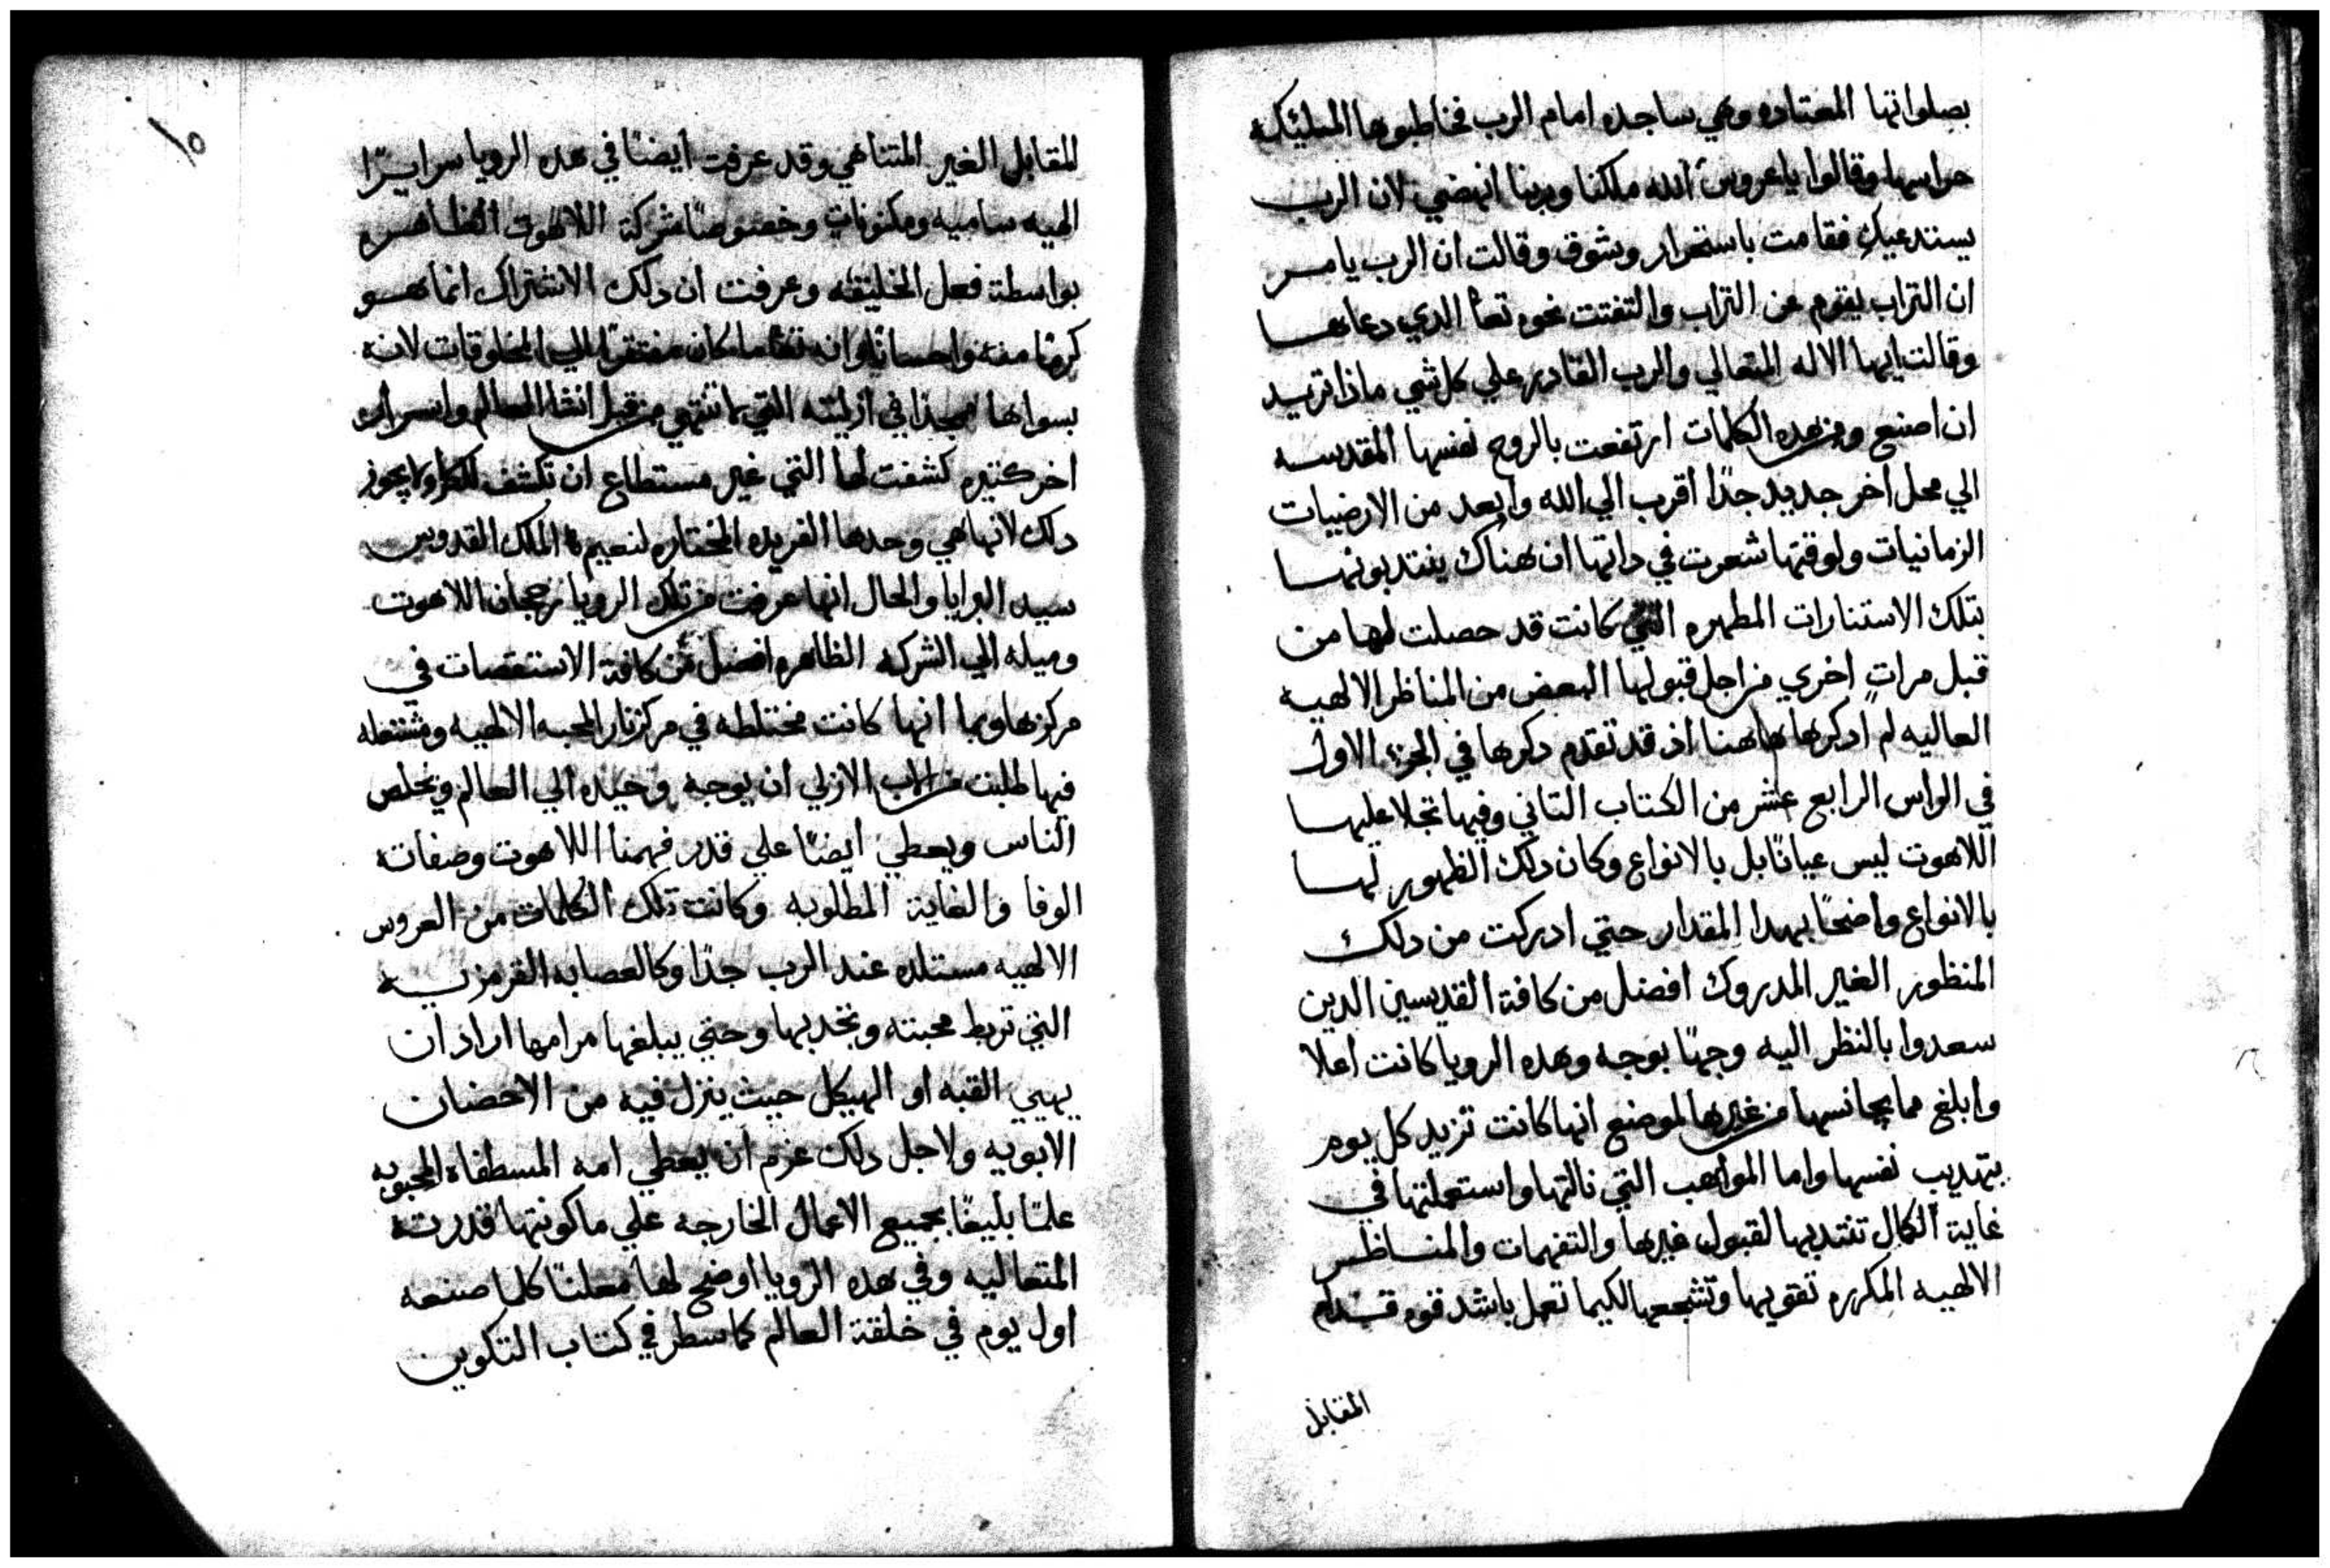 بصلواتها المعتاده وهي ساجده امام الرب فخاطبوها المليكه
حراسها وقالوا ياعروس الله ملكنا وربنا انهضي لان الرب
يستدعيكِ فقامت باستمرار وبشوق وقالت ان الرب يامر
ان التراب يقوم من التراب والتفتت نحوه تعا الدي دعاها
وقالت ايها الاله المتعالي والرب القادر علي كل شي ماذا تريد
ان اصنع ومن هده الكلمات ارتفعت بالروح نفسها المقدسه
الي محل اخر جديد جدًا اقرب الي الله وابعد من الارضيات
الزمانيات ولوقتها شعرت في داتها ان هناك ينتدبونها
بتلك الاستنارات المطهره التي كانت قد حصلت لها من
قبل مراتٍ اخري من اجل قبولها البعض من المناظر الالهيه
العاليه لم ادكرها هاهنا اذ قد تقدم دكرها في الجزء الاول
في الراس الرابع عشر من الكتاب التاني وفيها تجلا عليها
اللاهوت ليس عيانًا بل بالانواع وكان دلك الظهور لها
بالانواع واضحًا بهدا المقدار حتي ادركت من دلك
المنظور الغير المدروك افضل من كافة القديسين الدين
سعدوا بالنظر اليه وجهًا بوجه وهده الرويا كانت اعلا
وابلغ مما يجانسها من غيرها لموضع انها كانت تزيد كل يوم
بتهديب نفسها واما المواهب التي نالتها واستعملتها في
غاية الكمال تنتدبها لقبول غيرها والتفهمات والمناظر
الالهيه المكرره تقويها وتشجعها لكيما تعمل باشد قوه قدام
المقابل
١٥
المقابل الغير المتناهي وقد عرفت ايضًا في هده الرويا سرايرًا
الهيه ساميه ومكنونات وخصوصًا شركة اللاهوت الظاهره
بواسطة فعل الخليقه وعرفت ان دلك الاشتراك انما هو
كرمًا منه واحسانًا وانه تعا ما كان مفتقرًا الي المخلوقات لانه
بسواها ممجدًا في ازليته التي ما تنتهي من قبل انشا العالم واسرار
اخر كتيره كشفت لها التي غير مستطاع ان تكشف للكل ولا يجوز
دلك لانها هي وحدها الفريده المختاره لنعيم الملك القدوس
سيد البرايا والحال انها عرفت من تلك الرويا رجحان اللاهوت
وميله الي الشركه الظاهره افضل من كافة الاستقصات في
مركزها وبما انها كانت مختلطه في مركز نار المحبه الالهيه ومشتعله
فيها طلبت من الاب الازلي ان يوجه وحيده الي العالم ويخلص
الناس ويعطي ايضًا علي قدر فهمنا اللاهوت وصفاته
الوفا والغاية المطلوبه وكانت تلك الكلمات من العروس
الالهيه مستلده عند الرب جدًا وكالعصابه القرمزيه
التي تربط محبته وتجدبها وحتي يبلغها مرامها اراد ان
يهيي القبه او الهيكل حيث ينزل فيه من الاحضان
الابويه ولاجل دلك عزم ان يعطي امه المسطفاه المحبوبه
علمًا بليغًا بجميع الاعمال الخارجه علي ما كونتها قدرته
المتعاليه وفي هده الرويا اوضح لها معلنًا كلما صنعه
اول يوم في خلقة العالم كما سطر في كتاب التكوين